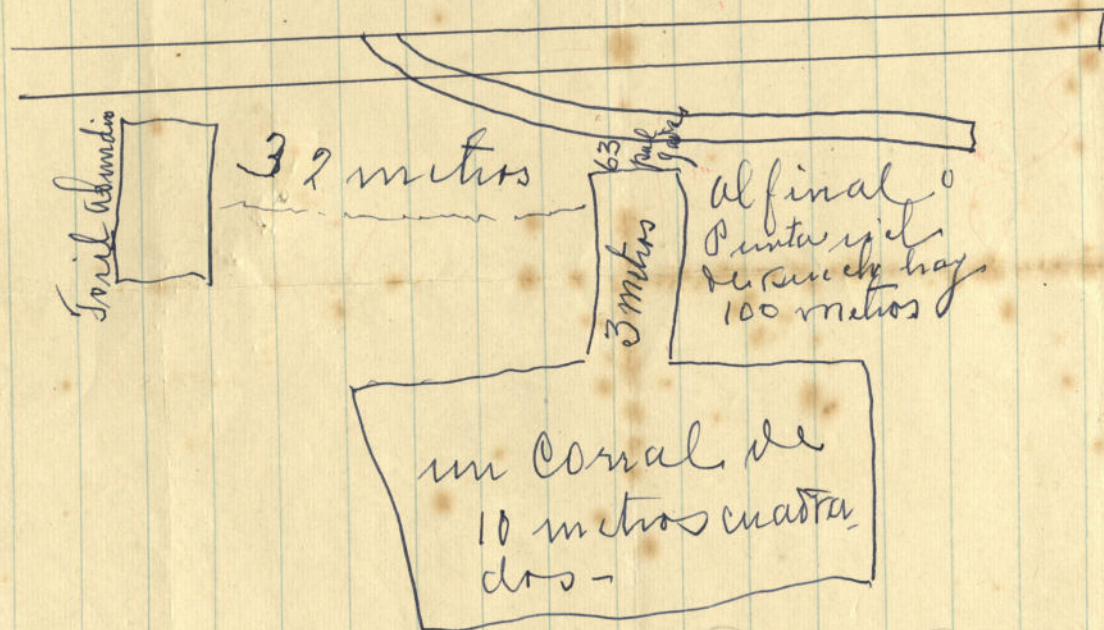 Toril Abundio
32 metros
63
pul
gadas
3 metros
al final
Punta riel
hay
100 metros
un corral de
10 metros cuadra
dos-